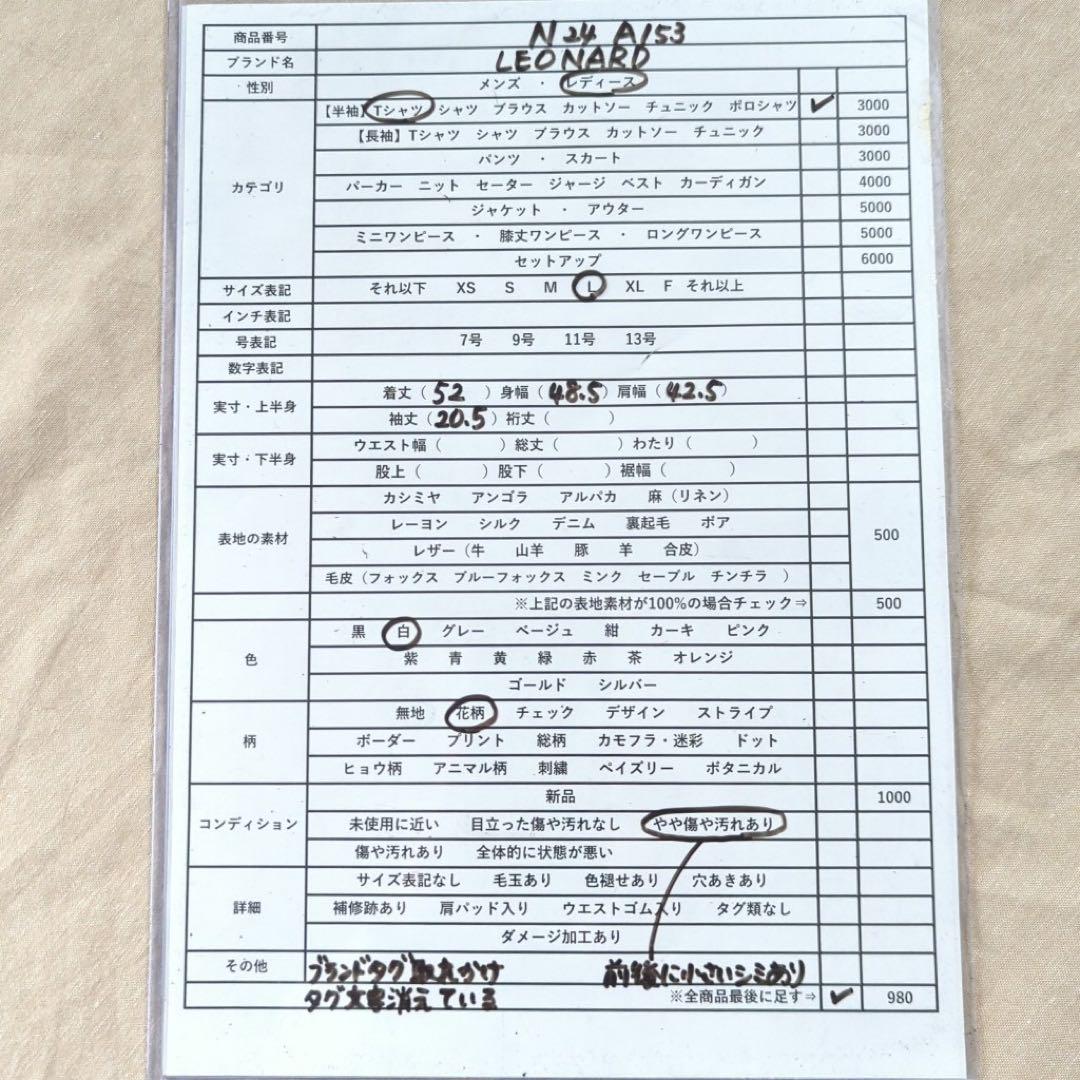 商品番号 N24 A153
ブランド名 LEONARD
性別 メンズ ・ レディース
カテゴリ
【半袖】Tシャツ シャツ ブラウス カットソー チュニック ポロシャツ ✓ 3000
【長袖】Tシャツ シャツ ブラウス カットソー チュニック 3000
パンツ ・ スカート 3000
パーカー ニット セーター ジャージ ベスト カーディガン 4000
ジャケット ・ アウター 5000
ミニワンピース ・ 膝丈ワンピース ・ ロングワンピース 5000
セットアップ 6000
サイズ表記 それ以下 XS S M L XL F それ以上
インチ表記
号表記 7号 9号 11号 13号
数字表記
実寸・上半身
着丈（52）身幅（48.5）肩幅（42.5）
袖丈（20.5）裄丈（ ）
実寸・下半身
ウエスト幅（ ）総丈（ ）わたり（ ）
股上（ ）股下（ ）裾幅（ ）
表地の素材
カシミヤ アンゴラ アルパカ 麻（リネン）
レーヨン シルク デニム 裏起毛 ボア 500
レザー（牛 山羊 豚 羊 合皮）
毛皮（フォックス ブルーフォックス ミンク セーブル チンチラ ）
※上記の表地素材が100%の場合チェック⇒ 500
色
黒 白 グレー ベージュ 紺 カーキ ピンク
紫 青 黄 緑 赤 茶 オレンジ
ゴールド シルバー
柄
無地 花柄 チェック デザイン ストライプ
ボーダー プリント 総柄 カモフラ・迷彩 ドット
ヒョウ柄 アニマル柄 刺繍 ペイズリー ボタニカル
コンディション
新品 1000
未使用に近い 目立った傷や汚れなし やや傷や汚れあり
傷や汚れあり 全体的に状態が悪い
詳細
サイズ表記なし 毛玉あり 色褪せあり 穴あきあり
補修跡あり 肩パッド入り ウエストゴム入り タグ類なし
ダメージ加工あり
その他 ブランドタグ取れかけ 前後に小さいシミあり
タグ文字消えている ※全商品最後に足す⇒ ✓ 980